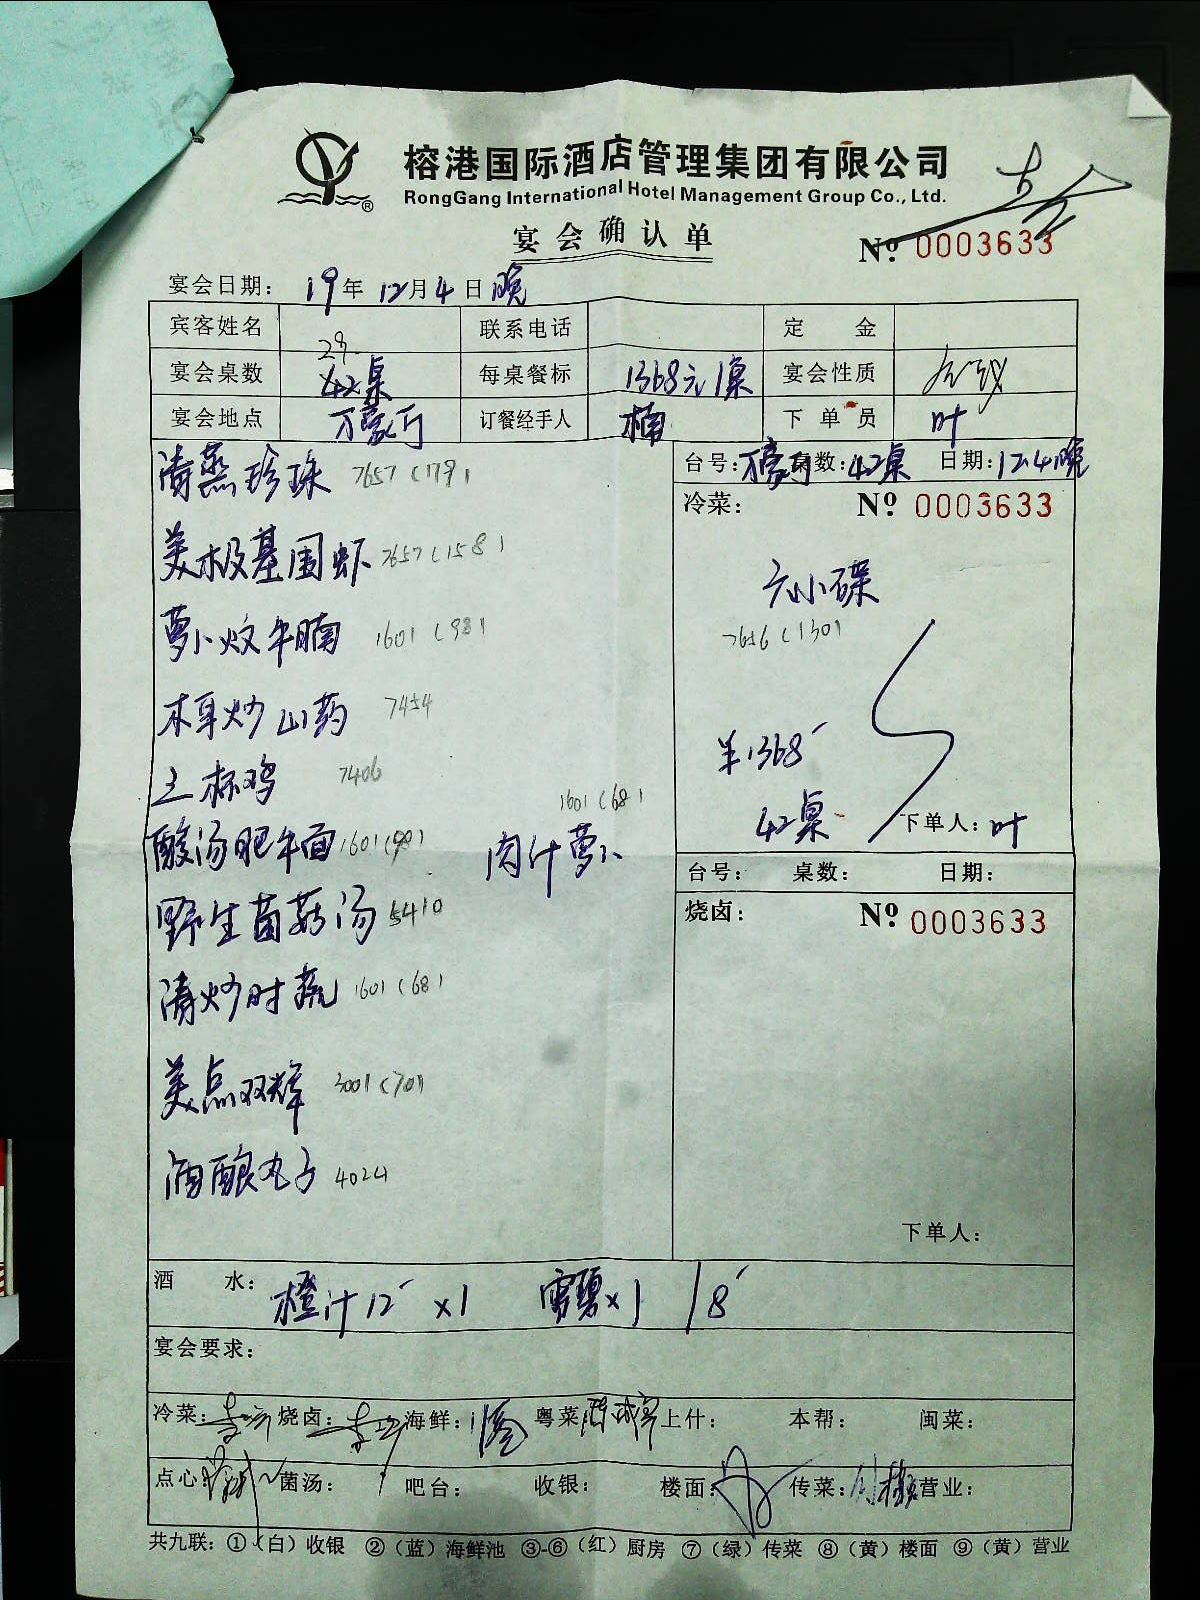 榕港国际酒店管理集团有限公司
RongGang International Hotel Management Group Co., Ltd.
宴会确认单
№ 0003633
宴会日期： 19年 12月 4 日 晚
宾客姓名 联系电话 定 金
29
宴会桌数 42桌 每桌餐标 1368元/桌 宴会性质 会议
宴会地点 万豪厅 订餐经手人 楠 下 单 员 叶
清蒸珍珠 7657 (179)
台号：万豪厅 桌数：42桌 日期：12.4晚
冷菜： № 0003633
美极基围虾 7657 (158)
六小碟
7656 (130)
萝卜炆牛腩 1601 (98)
木耳炒山药 7454
¥1368
三杯鸡 7406
1601 (68)
42桌 下单人：叶
酸汤肥牛面 1601 (90) 肉汁萝卜
台号： 桌数： 日期：
野生菌菇汤 5410
烧卤： № 0003633
清炒时蔬 1601 (68)
美点双辉 3001 (70)
酒酿丸子 4024
下单人：
酒 水： 橙汁12 ×1 雪碧×1 /8
宴会要求：
冷菜： 烧卤： 海鲜： 粤菜： 上什： 本帮： 闽菜：
点心： 菌汤： 吧台： 收银： 楼面： 传菜： 营业：
共九联：①（白）收银 ②（蓝）海鲜池 ③-⑥（红）厨房 ⑦（绿）传菜 ⑧（黄）楼面 ⑨（黄）营业